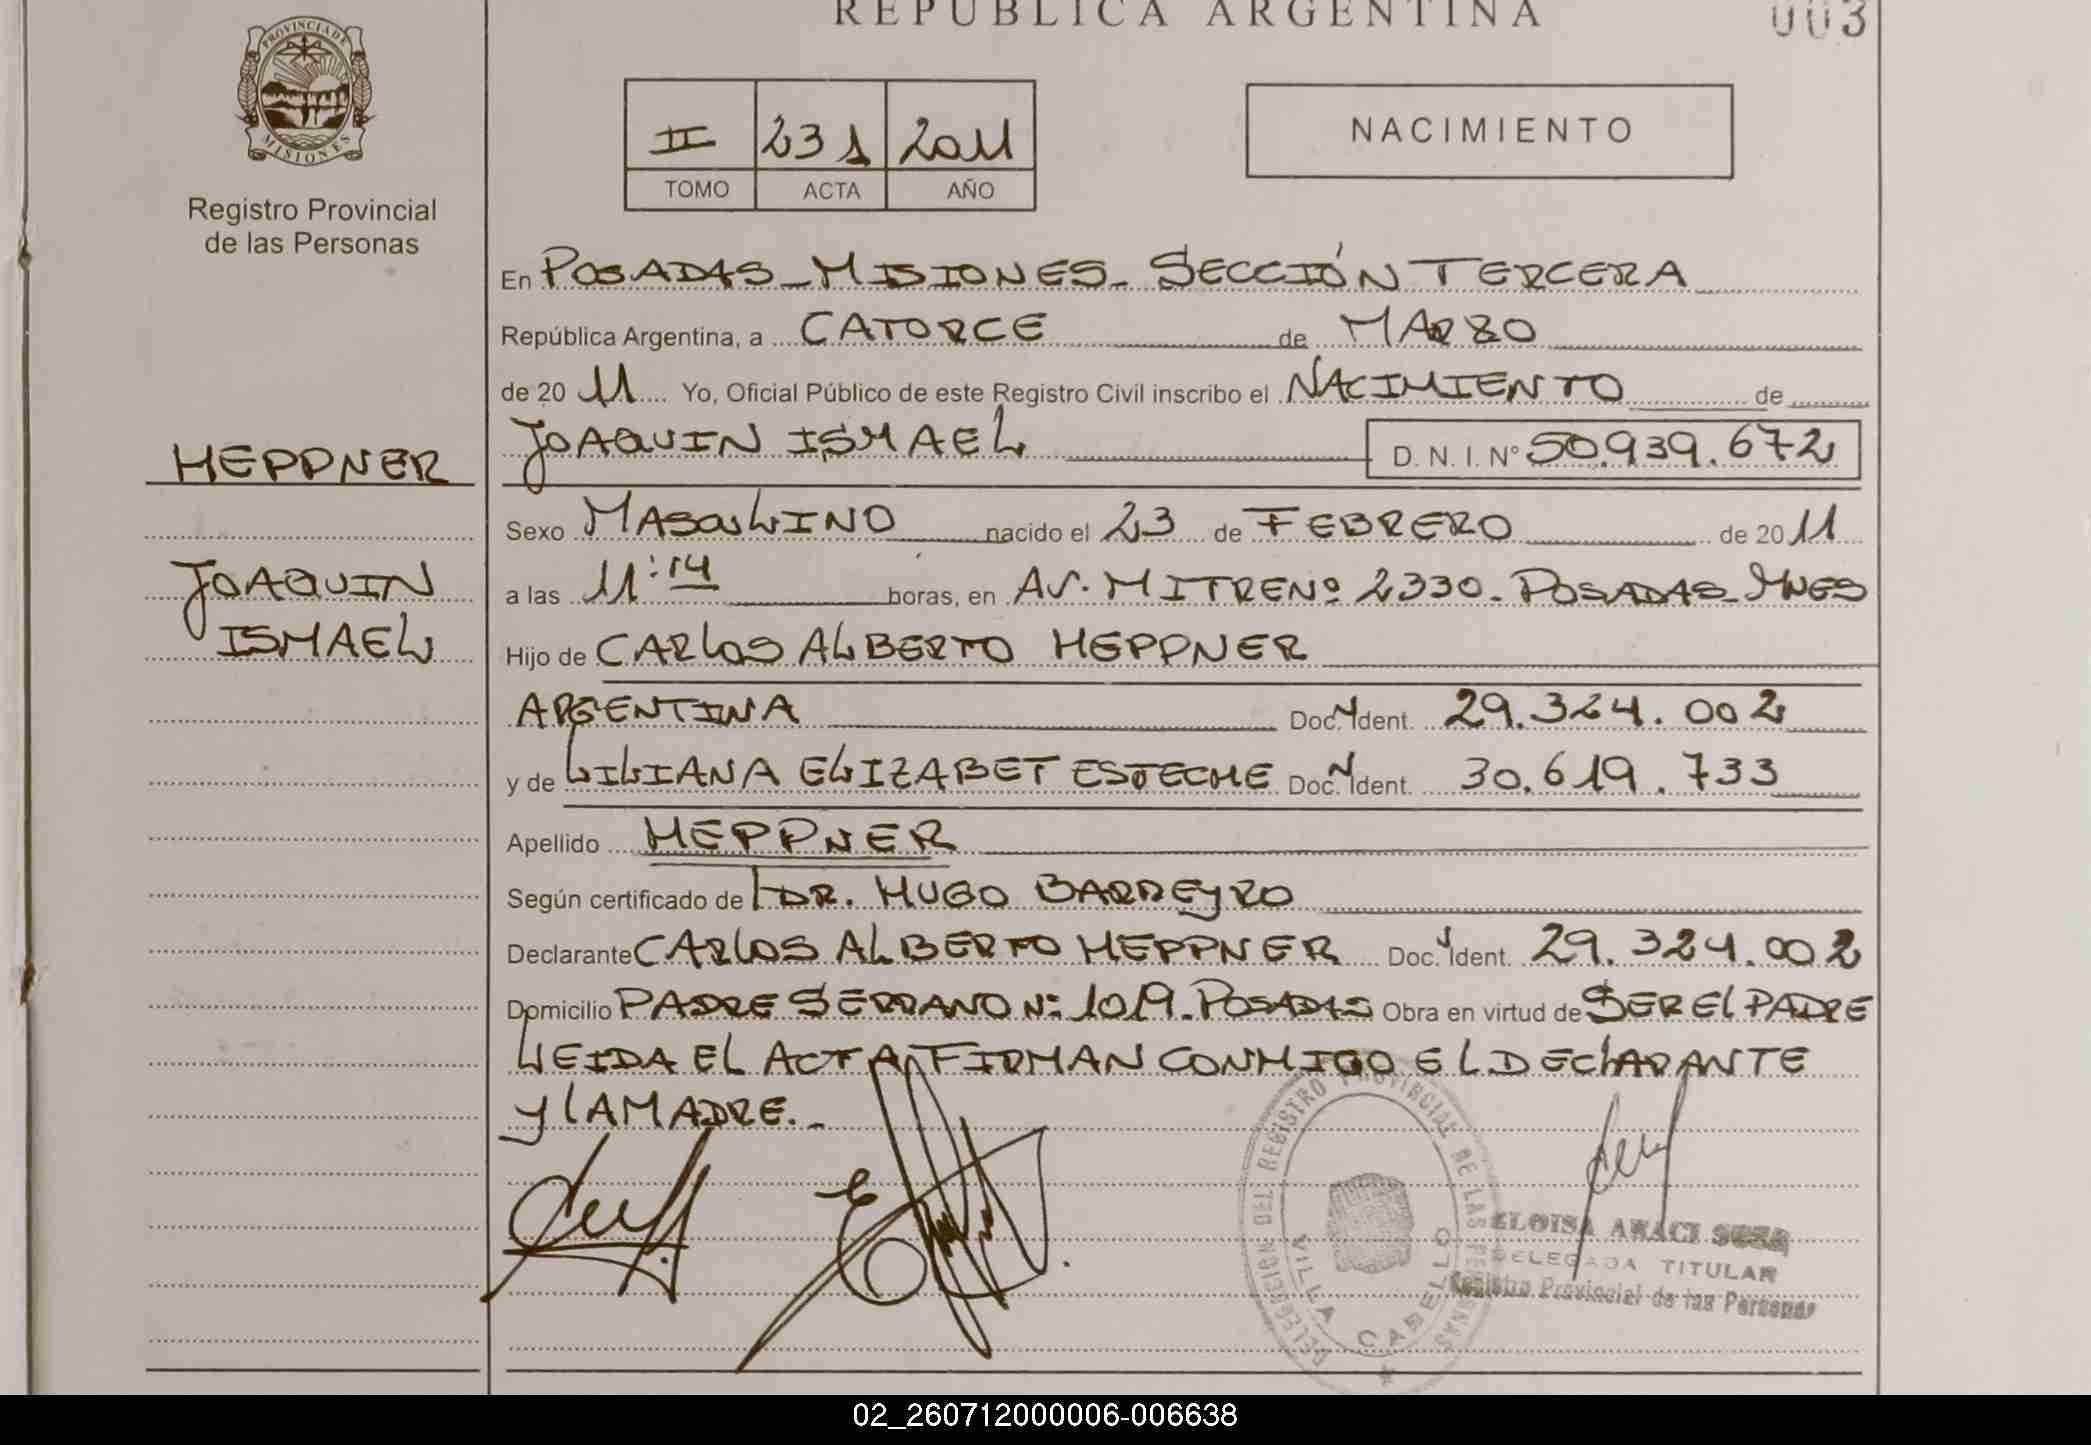 REPUBLICA ARGENTINA
003
PROVINCIA DE MISIONES
Registro Provincial
de las Personas
II 231 2011
TOMO ACTA AÑO
NACIMIENTO
En POSADAS-MISIONES- SECCIÓN TERCERA
República Argentina, a CATORCE de MARZO
de 20 11 Yo, Oficial Público de este Registro Civil inscribo el NACIMIENTO de
JOAQUIN ISMAEL D. N. I. Nº 50.939.672
HEPPNER
JOAQUIN
ISMAEL
Sexo MASCULINO nacido el 23 de FEBRERO de 20 11
a las 11:14 horas, en AV. MITRE Nº 2330- POSADAS-MNES
Hijo de CARLOS ALBERTO HEPPNER
ARGENTINA Doc. Ident. 29.324.002
y de LILIANA ELIZABET ESTECHE Doc. Ident. 30.619.733
Apellido HEPPNER
Según certificado de DR. HUGO BARREYRO
Declarante CARLOS ALBERTO HEPPNER Doc. Ident. 29.324.002
Domicilio PADRE SERRANO Nº 1019-POSADAS Obra en virtud de SER EL PADRE
LEIDA EL ACTA FIRMAN CONMIGO EL DECLARANTE
Y LA MADRE.-
DELEGACION DEL REGISTRO PROVINCIAL DE LAS PERSONAS
VILLA CABELLO
ELOISA ARACI
DELEGADA TITULAR
Registro Provincial de las Personas
02_260712000006-006638